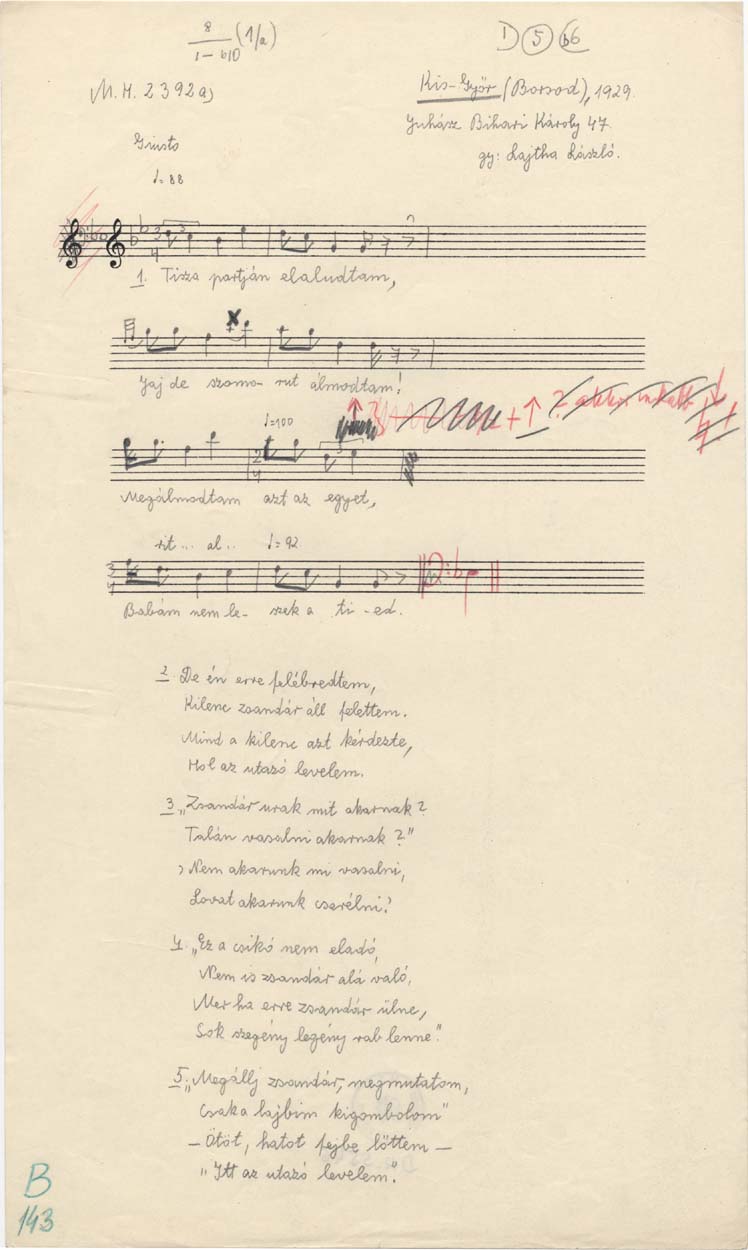 8 (1/a)
1 – b10
1) (5) (b6
M.H. 2392a)
Kis-Győr (Borsod), 1929.
Juhász Bihari Károly 47.
gy: Lajtha László.
Giusto
♩=88
3
4
3
1. Tisza partján elaludtam,
x
Jaj de szomo- rut álmodtam!
+ ↑ ? akkor inkább
♩=100
2
4
3
Megálmodtam azt az egyet,
rit... al.. ♩=92
3
4
Babám nem le- szek a ti-ed.
2. De én erre felébredtem,
Kilenc zsandár áll felettem.
Mind a kilenc azt kérdezte,
Hol az utazó levelem.
3. „Zsandár urak mit akarnak?
Talán vasalni akarnak?"
„Nem akarunk mi vasalni,
Lovat akarunk cserélni!
4. „Ez a csikó nem eladó,
Nem is zsandár alá való,
Mer ha erre zsandár ülne,
Sok szegény legény rab lenne".
5. „Megállj zsandár, megmutatom,
Csak a lajbim kigombolom"
– Ötöt, hatot fejbe lőttem –
„Itt az utazó levelem".
B
143